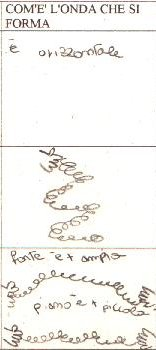 COM'E' L'ONDA CHE SI
FORMA
è orizzontale
forte è + ampia
piano è + piccola